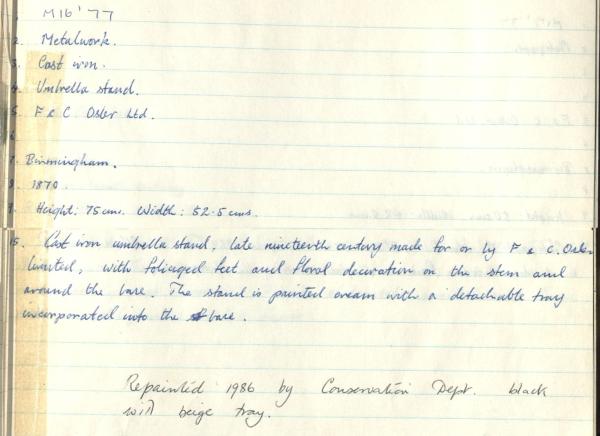 1. M16 '77
2. Metalwork.
3. Cast iron.
4. Umbrella stand.
5. F & C Osler Ltd.
6
7. Birmingham.
8. 1870.
9. Height: 75 cms. Width: 52.5 cms.
15. Cast iron umbrella stand, late nineteenth century made for or by F & C. Osler
Limited, with foliaged feet and floral decoration on the stem and
around the base. The stand is painted cream with a detachable tray
incorporated into the base.
Repainted 1986 by Conservation Dept. black
with beige tray.